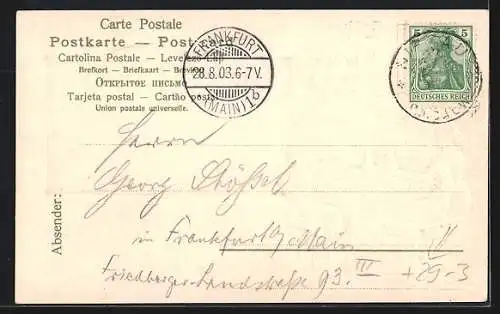 Carte Postale
Postkarte — Post
Cartolina Postale — Levelező-Lap
Brefkort — Briefkaart — Brevkort
ОТКРЫТОЕ ПИСЬМО
Tarjeta postal — Cartão postal
Union postale universelle.
FRANKFURT
28.8.03.6-7V.
(MAIN) 1
5 5
DEUTSCHES REICH
Absender:
Herrn
Georg Stößel
in Frankfurt a/Main
Friedberger-Landstraße 93. III